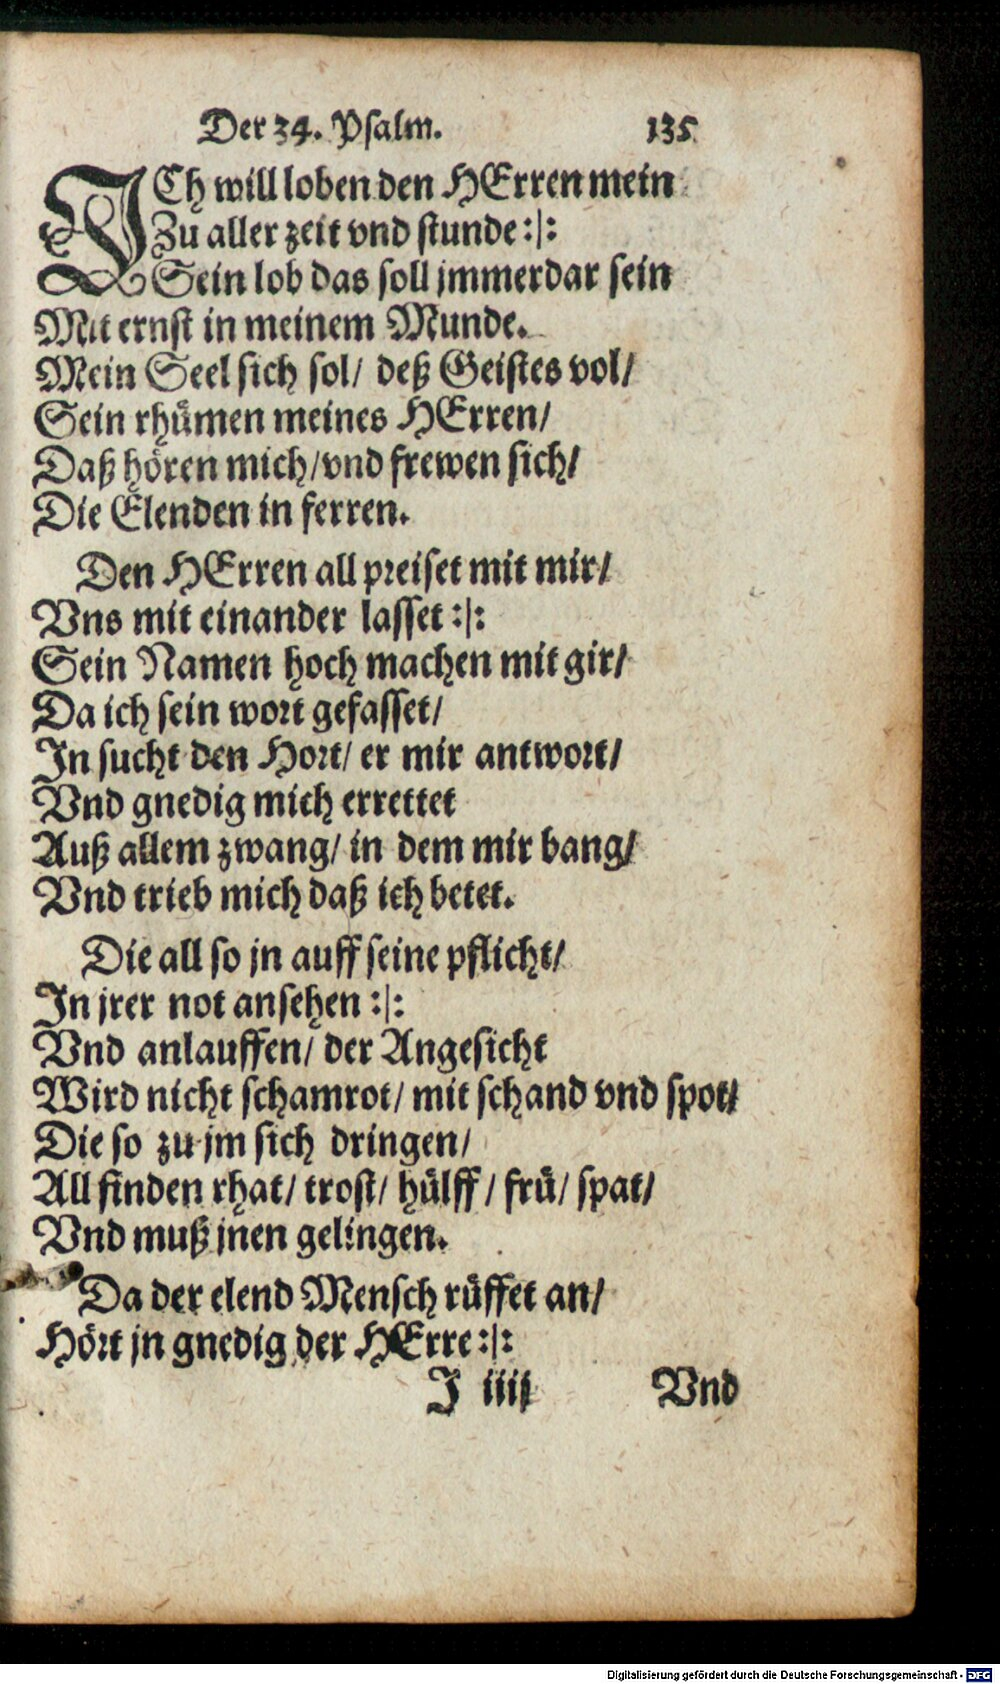 Der 34. Psalm. 135
ICh will loben den HErren mein
Zu aller zeit vnd stunde :|:
Sein lob das soll jmmerdar sein
Mit ernst in meinem Munde.
Mein Seel sich sol/ deß Geistes vol/
Sein rhümen meines HErren/
Daß hören mich/ vnd frewen sich/
Die Elenden in ferren.
Den HErren all preiset mit mir/
Vns mit einander lasset :|:
Sein Namen hoch machen mit gir/
Da ich sein wort gefasset/
In sucht den Hort/ er mir antwort/
Vnd gnedig mich errettet
Auß allem zwang/ in dem mir bang/
Vnd trieb mich daß ich betet.
Die all so jn auff seine pflicht/
In jrer not ansehen :|:
Vnd anlauffen/ der Angesicht
Wird nicht schamrot/ mit schand vnd spot/
Die so zu jm sich dringen/
All finden rhat/ trost/ hülff/ frü/ spat/
Vnd muß jnen gelingen.
Da der elend Mensch rüffet an/
Hört jn gnedig der HErre :|:
I iiij Vnd
Digitalisierung gefördert durch die Deutsche Forschungsgemeinschaft - DFG